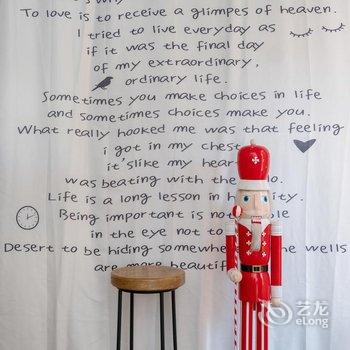 To love is to receive a glimpes of heaven.
I tried to live everyday as
if it was the final day
of my extraordinary,
ordinary life.
Sometimes you make choices in life
and sometimes choices make you.
What really hooked me was that feeling
i got in my chest
it'slike my hear
was beating with the
Life is a long lesson in
Being important is no
in the eye not to
Desert to be hiding some the wells
are more beautif
艺龙
eLong